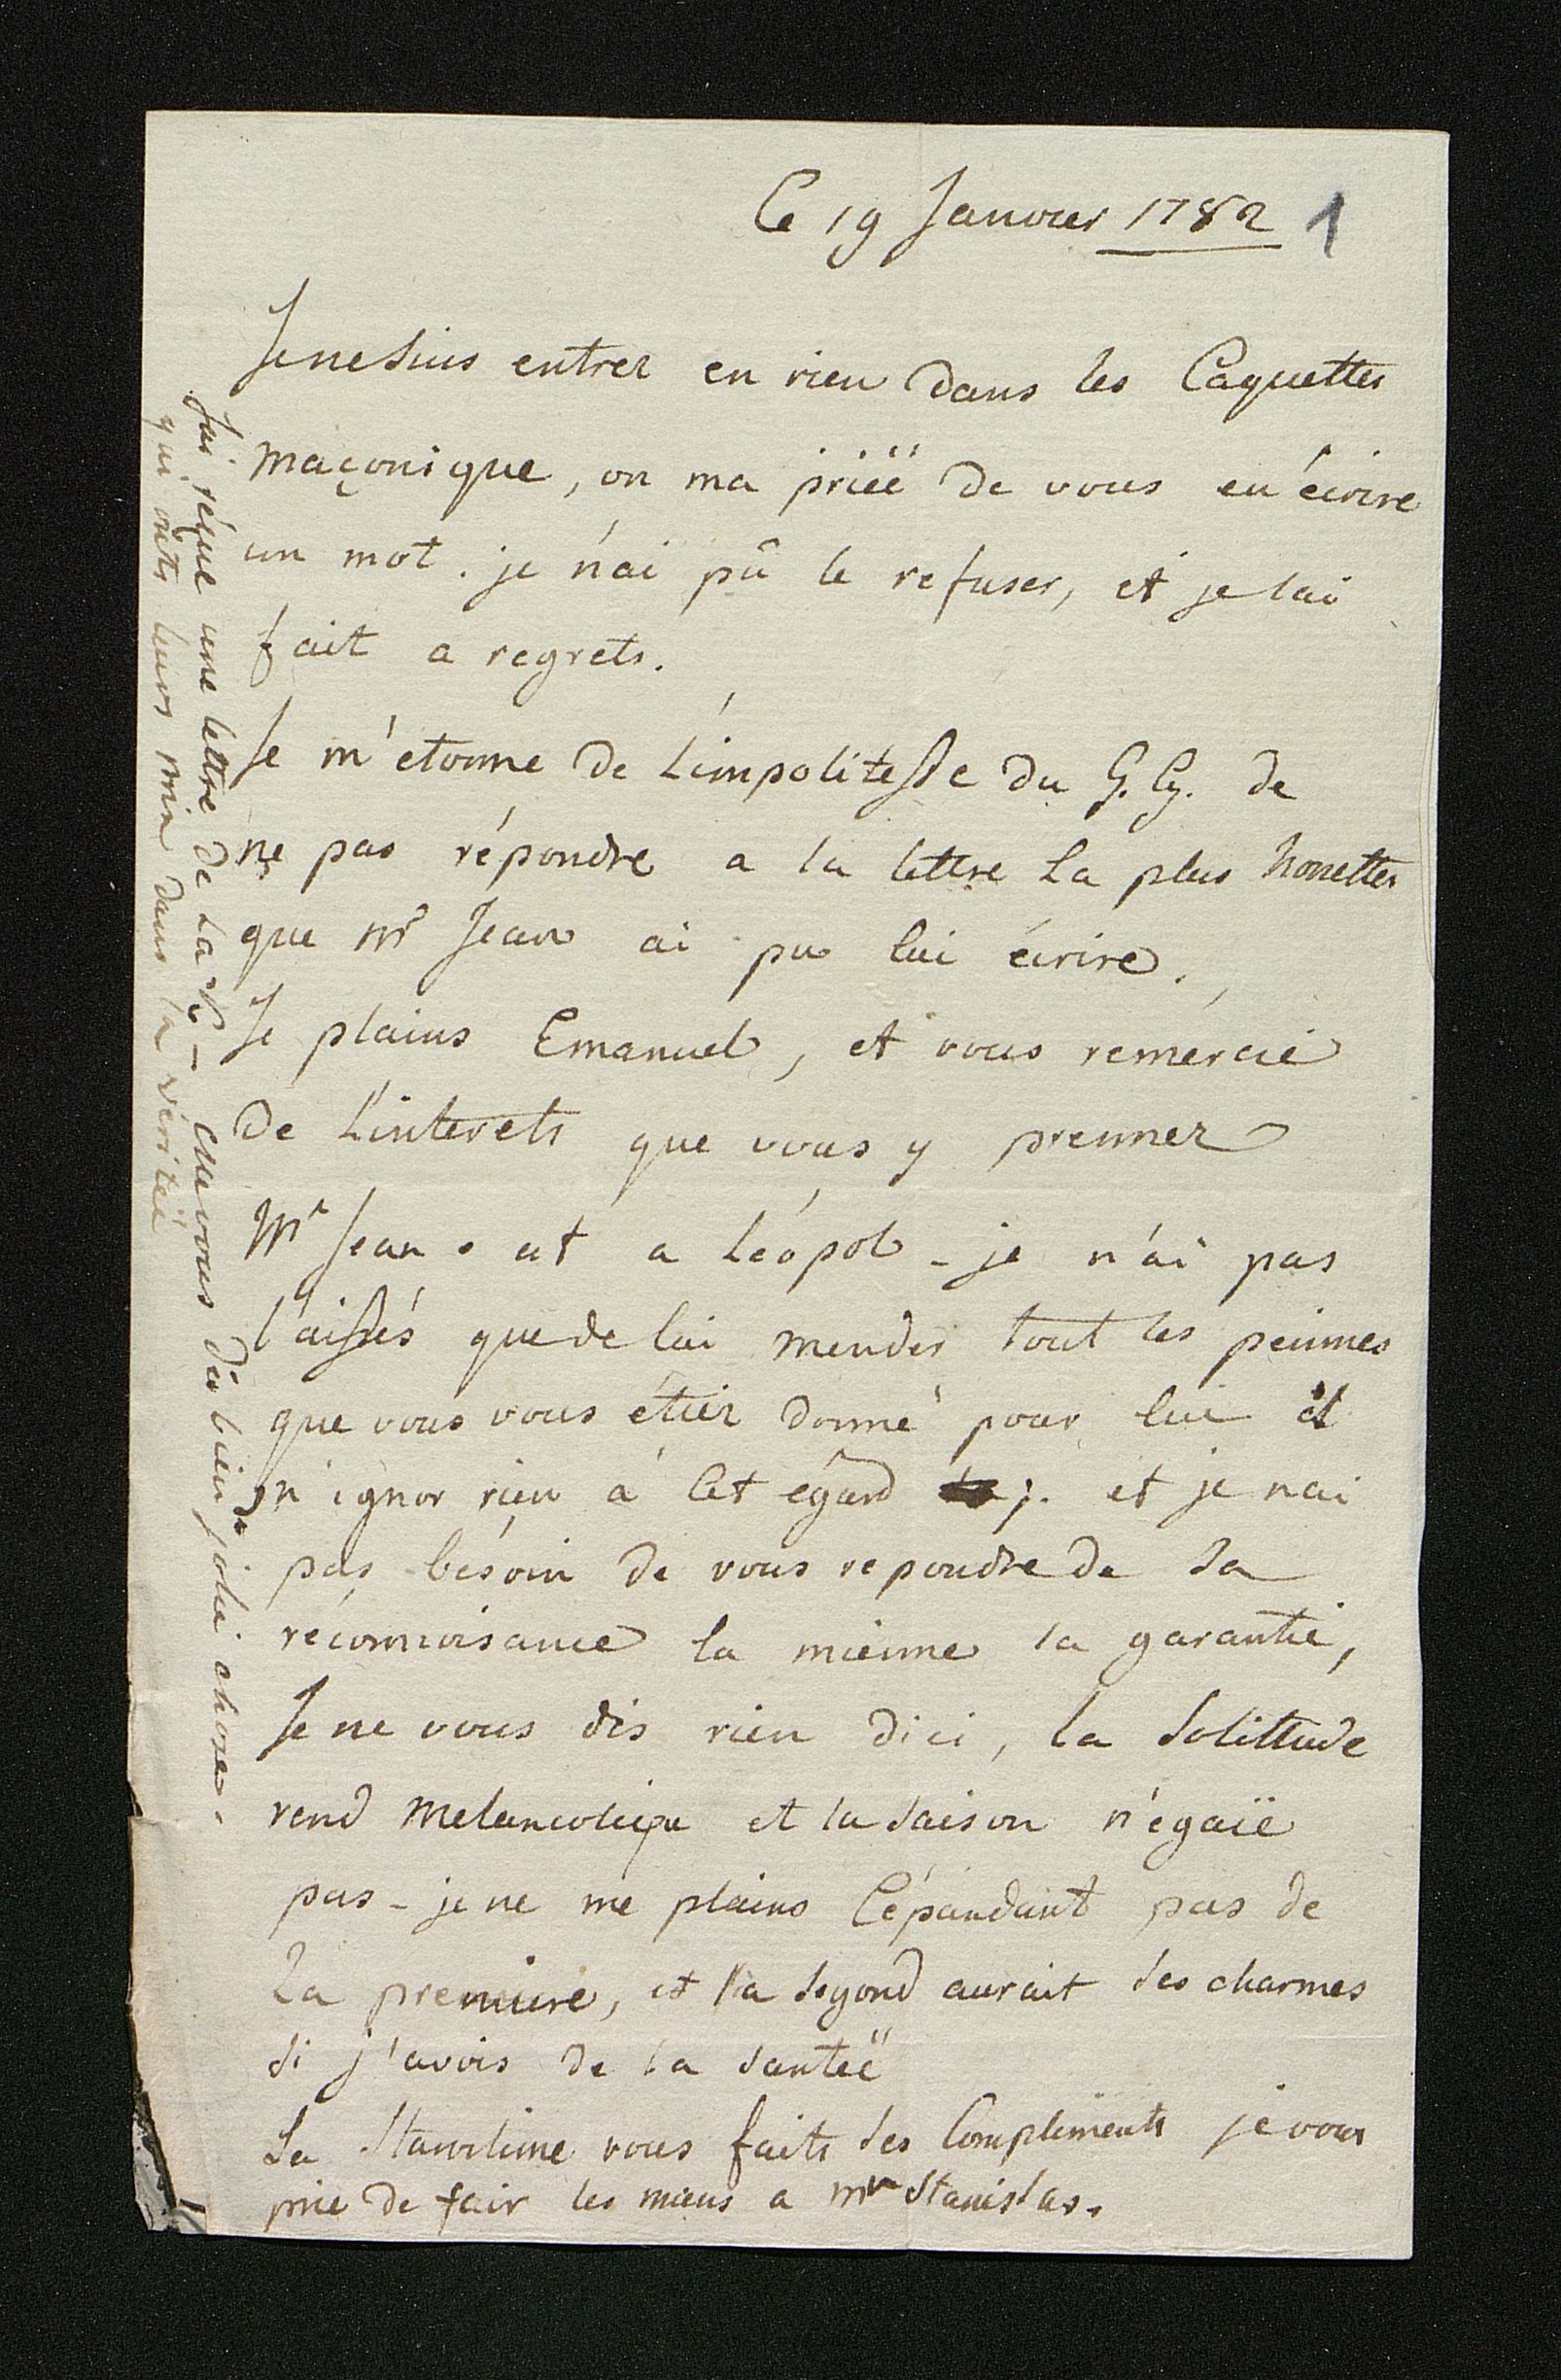 Ce 19 Janvier 1782 1
Je ne suis entrez en rien dans les Caquettes
maçonique, on ma priëë de vous en écrire
un mot. je n'ai pû le refuser, et je lai
fait a regrets.
Je m'etonne de L'impolitesse du G. Cz. de
ne pas répondre a la lettre La plus honettes
que mr Jean ai pu lui écrire.
Je plains Emanuel, et vous remércie
de L'interets que vous y prennez
Mr Jean et a Léópol - je n'ai pas
l'aissés que de lui mender tout les peinnes
que vous vous étiez donné pour lui il
n'ignor rien a Cet egard j. et je nai
pas bésoin de vous repondre de sa
réconnoisance la mienne la garantie,
Je ne vous dis rien dici, la Solittude
rend Melancolique et la saison n'egaïe
pas - je ne me plains Cépandant pas de
La premiere, et la segond aurait ses charmes
si j'avois de la santëë
La Staroline vous faits ses Compliments je vous
prie de fair les miens a mr Stanislas.
Jai réçue une lettre de La K - elle vous dis bien de jolie chose.
qui ontes leurs min dans la vëritëë